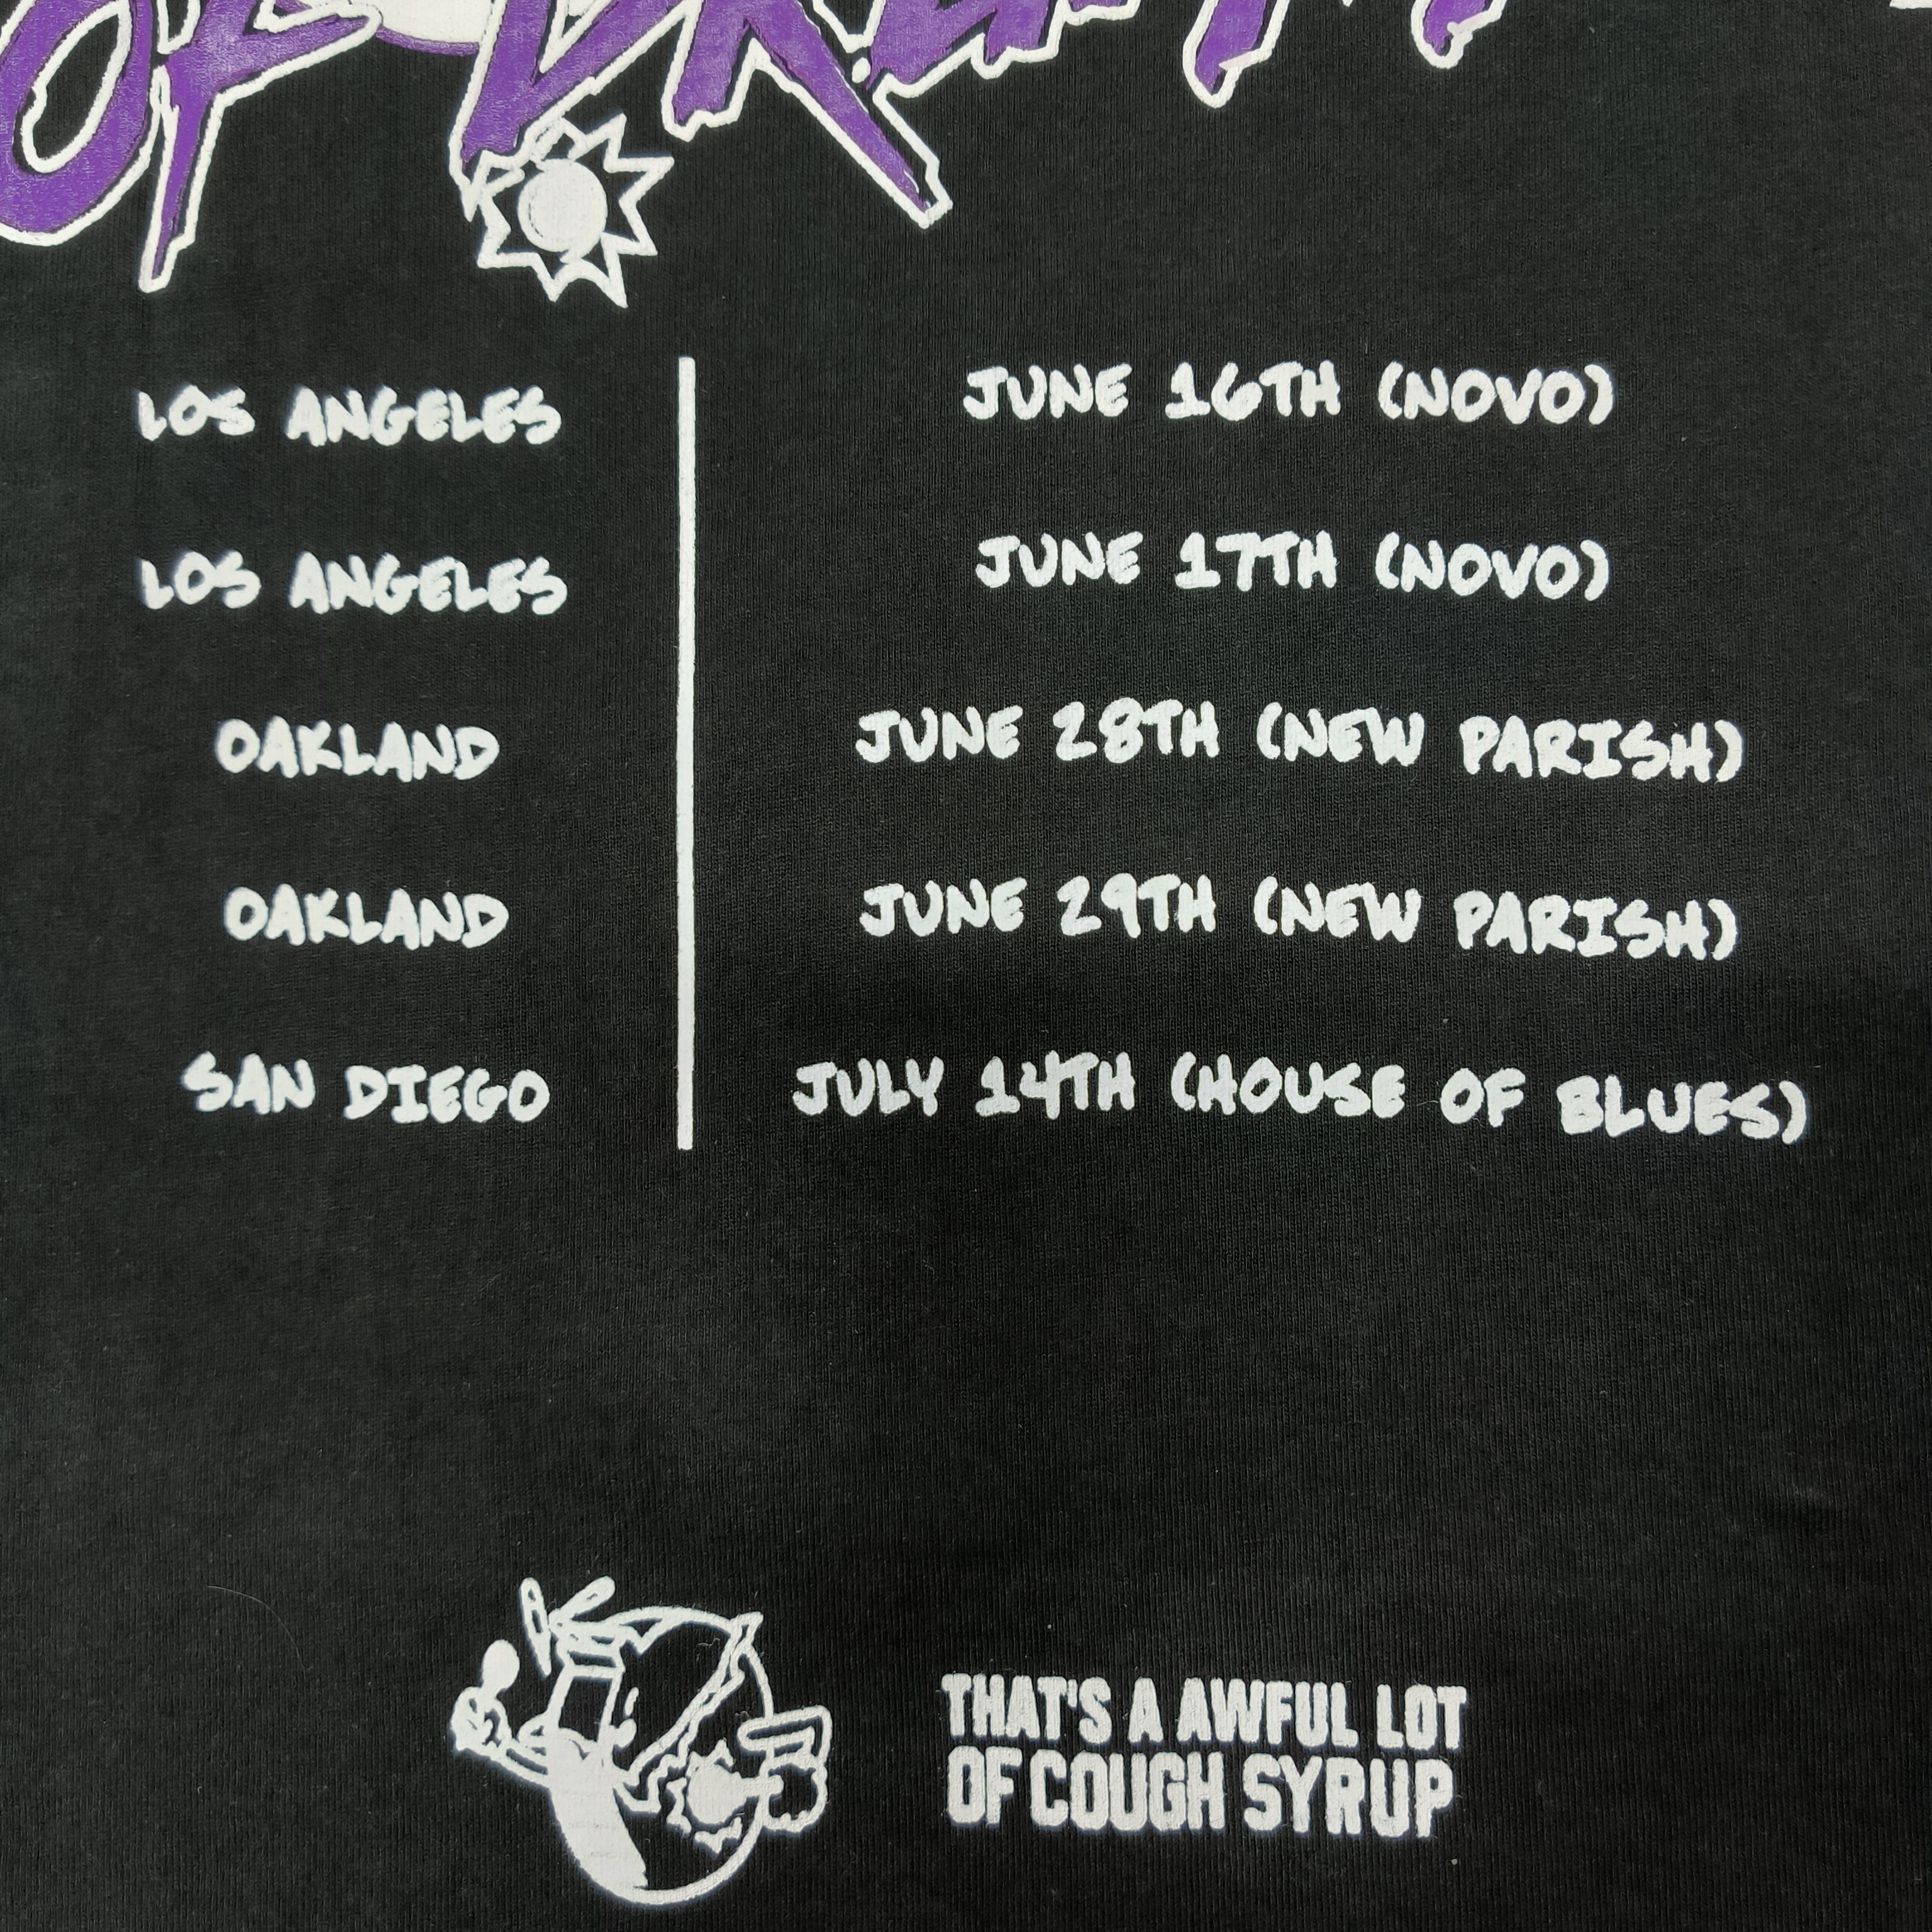 OF
LOS ANGELES JUNE 16TH (NOVO)
LOS ANGELES JUNE 17TH (NOVO)
OAKLAND JUNE 28TH (NEW PARISH)
OAKLAND JUNE 29TH (NEW PARISH)
SAN DIEGO JULY 14TH (HOUSE OF BLUES)
THAT'S A AWFUL LOT
OF COUGH SYRUP